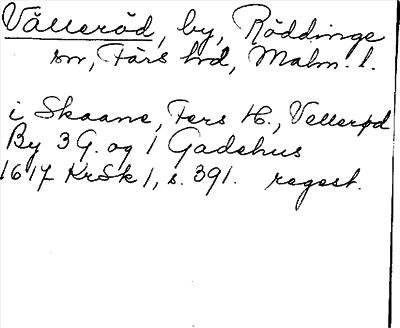 Vålleröd, by, Röddinge
sn, Färs hrd, Malm. l.
i Skaane, Fers H., Vellerød
By 3 G. og 1 Gadehus
1617 KrSk 1, s. 391. regest.